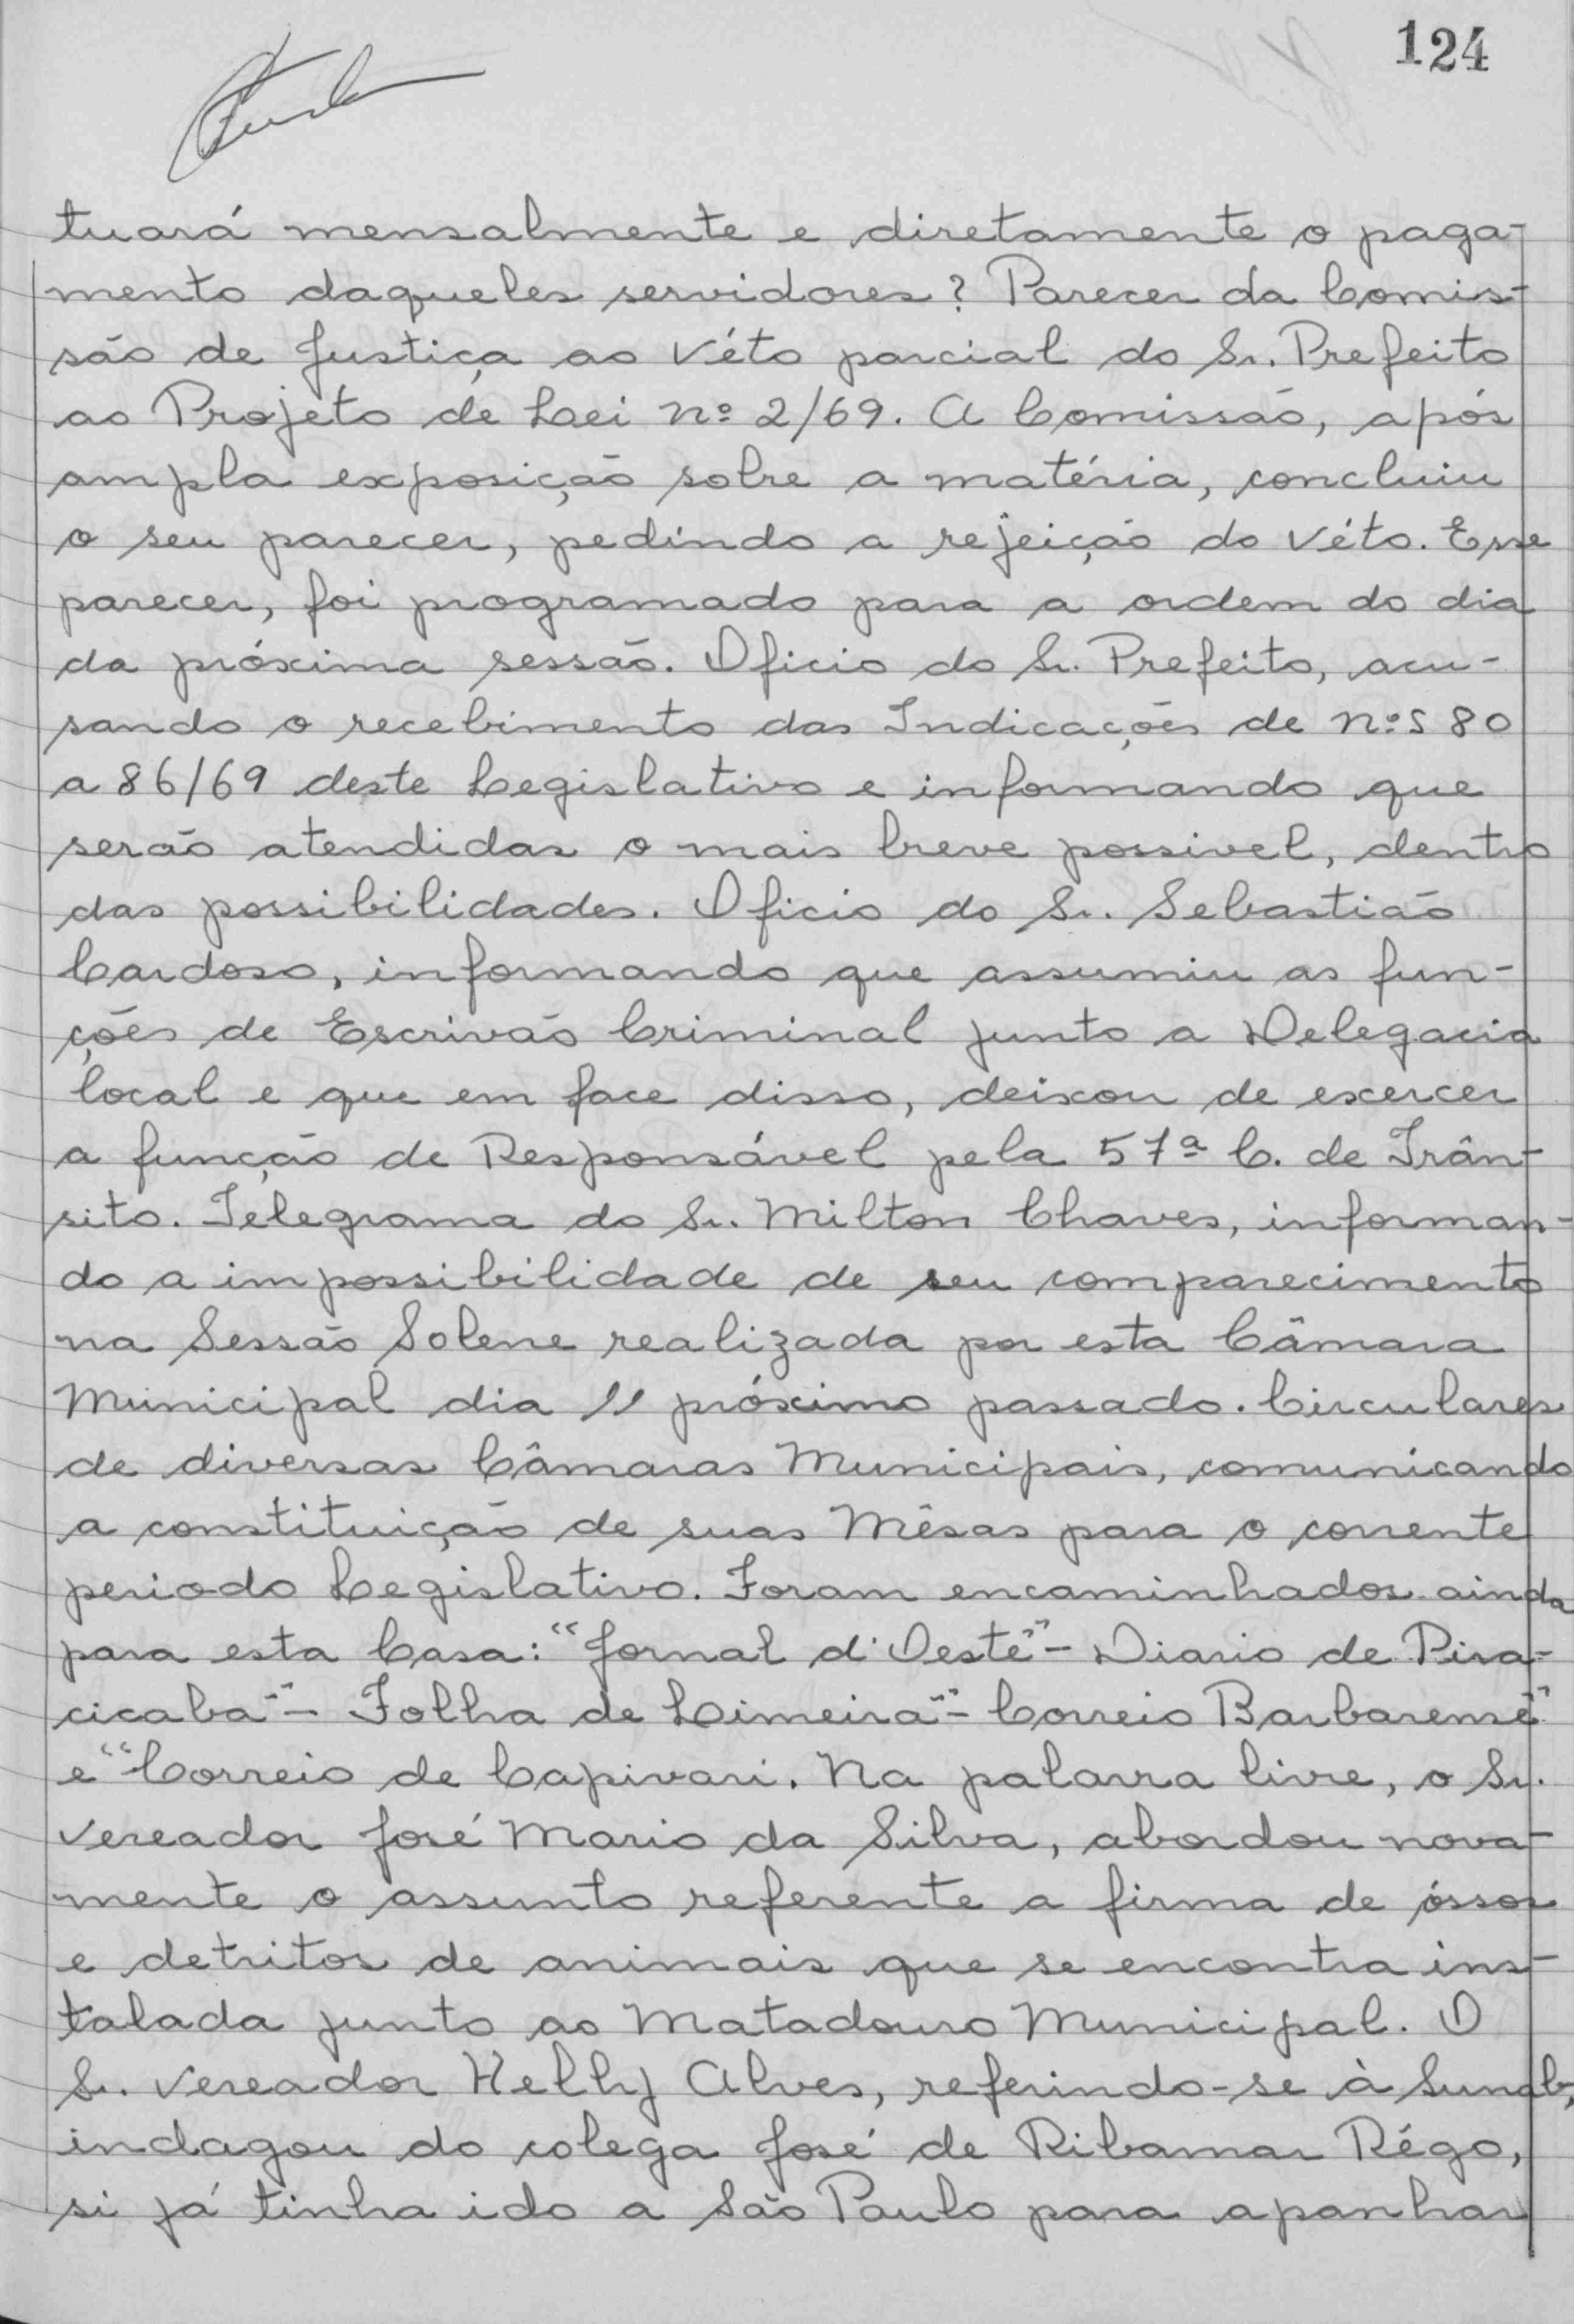 124
tuará mensalmente e diretamente o paga-
mento daqueles servidores? Parecer da Comis-
são de Justiça ao Véto parcial do Sr. Prefeito
ao Projeto de Lei nº 2/69. A Comissão, após
ampla exposição sobre a matéria, concluiu
o seu parecer, pedindo a rejeição do Véto. Esse
parecer, foi programado para a ordem do dia
da próxima sessão. Oficio do Sr. Prefeito, acu-
sando o recebimento das Indicações de nºs 80
a 86/69 deste Legislativo e informando que
serão atendidas o mais breve possivel, dentro
das possibilidades. Oficio do Sr. Sebastião
Cardoso, informando que assumiu as fun-
ções de Escrivão Criminal junto a Delegacia
local e que em face disso, deixou de exercer
a função de Responsável pela 57ª C. de Trân-
sito. Telegrama do Sr. Milton Chaves, informan-
do a impossibilidade de seu comparecimento
na Sessão Solene realizada por esta Câmara
Municipal dia 11 próximo passado. Circulares
de diversas Câmaras Municipais, comunicando
a constituição de suas Mêsas para o corrente
periodo Legislativo. Foram encaminhados ainda
para esta Casa: "Jornal d'Oeste" - Diario de Pira-
cicaba" - Folha de Limeira" - Correio Barbarense"
e "Correio de Capivari. Na palavra livre, o Sr.
Vereador José Mario da Silva, abordou nova-
mente o assunto referente a firma de óssos
e detritos de animais que se encontra ins-
talada junto ao Matadouro Municipal. O
Sr. Vereador Helly Alves, referindo-se à Sunab,
indagou do colega José de Ribamar Régo,
si já tinha ido a São Paulo para apanhar